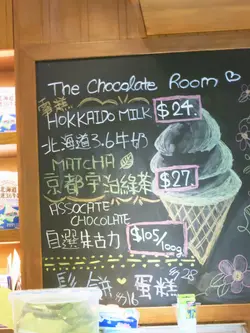 The Chocolate Room
雪糕
HOKKAIDO MILK $24.
北海道3.6牛奶
MATCHA
京都宇治綠茶 $27.
ASSOCATE
CHOCOLATE
自選朱古力 $105/100g
鬆餅 $16 蛋糕 $28